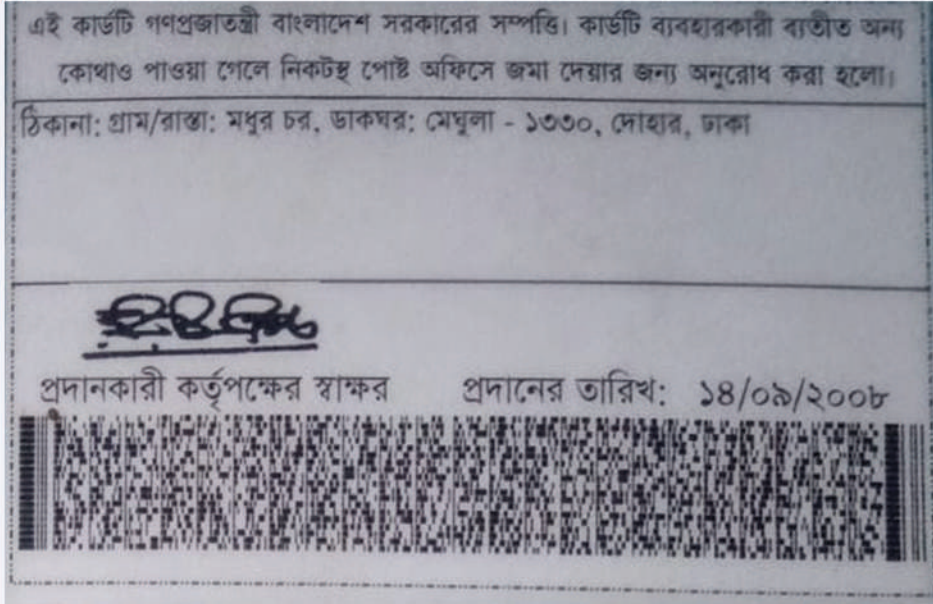 এই কার্ডটি গণপ্রজাতন্ত্রী বাংলাদেশ সরকারের সম্পত্তি। কার্ডটি ব্যবহারকারী ব্যতীত অন্য
কোথাও পাওয়া গেলে নিকটস্থ পোষ্ট অফিসে জমা দেয়ার জন্য অনুরোধ করা হলো।
ঠিকানা: গ্রাম/রাস্তা: মধুর চর, ডাকঘর: মেঘুলা - ১৩৩০, দোহার, ঢাকা
প্রদানকারী কর্তৃপক্ষের স্বাক্ষর প্রদানের তারিখ: ১৪/০৯/২০০৮